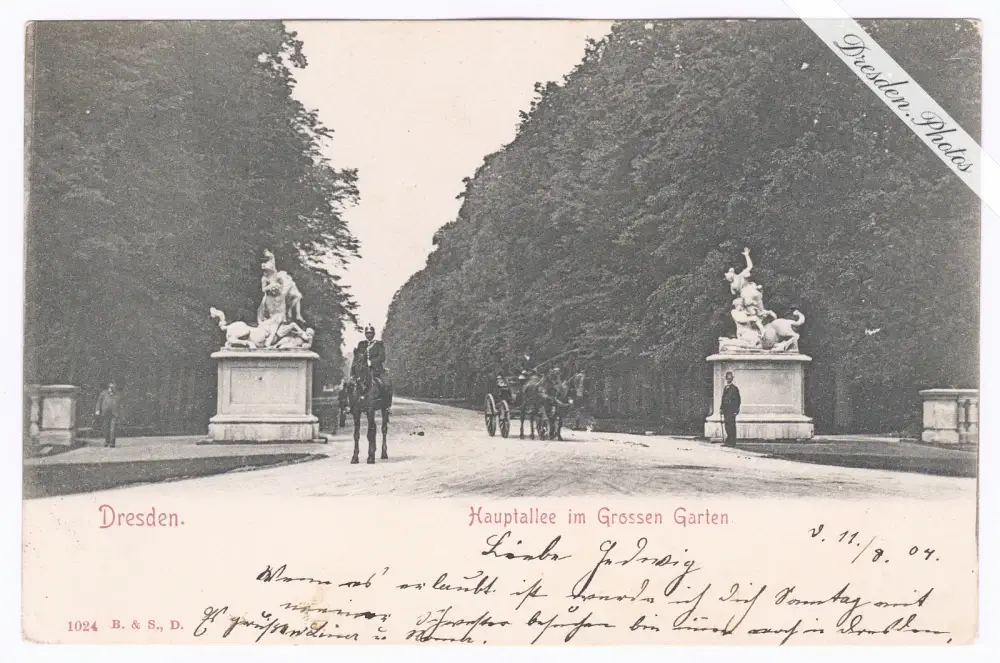 Dresden.Photos
Dresden.
Hauptallee im Grossen Garten
d. 11./8. 04.
Liebe Hedwig
Wenn es erlaubt ist werde ich dich Sonntag mit
meiner Schwester besuchen bin immer noch in Dresden,
Es grüßt u
1024 B. & S., D.